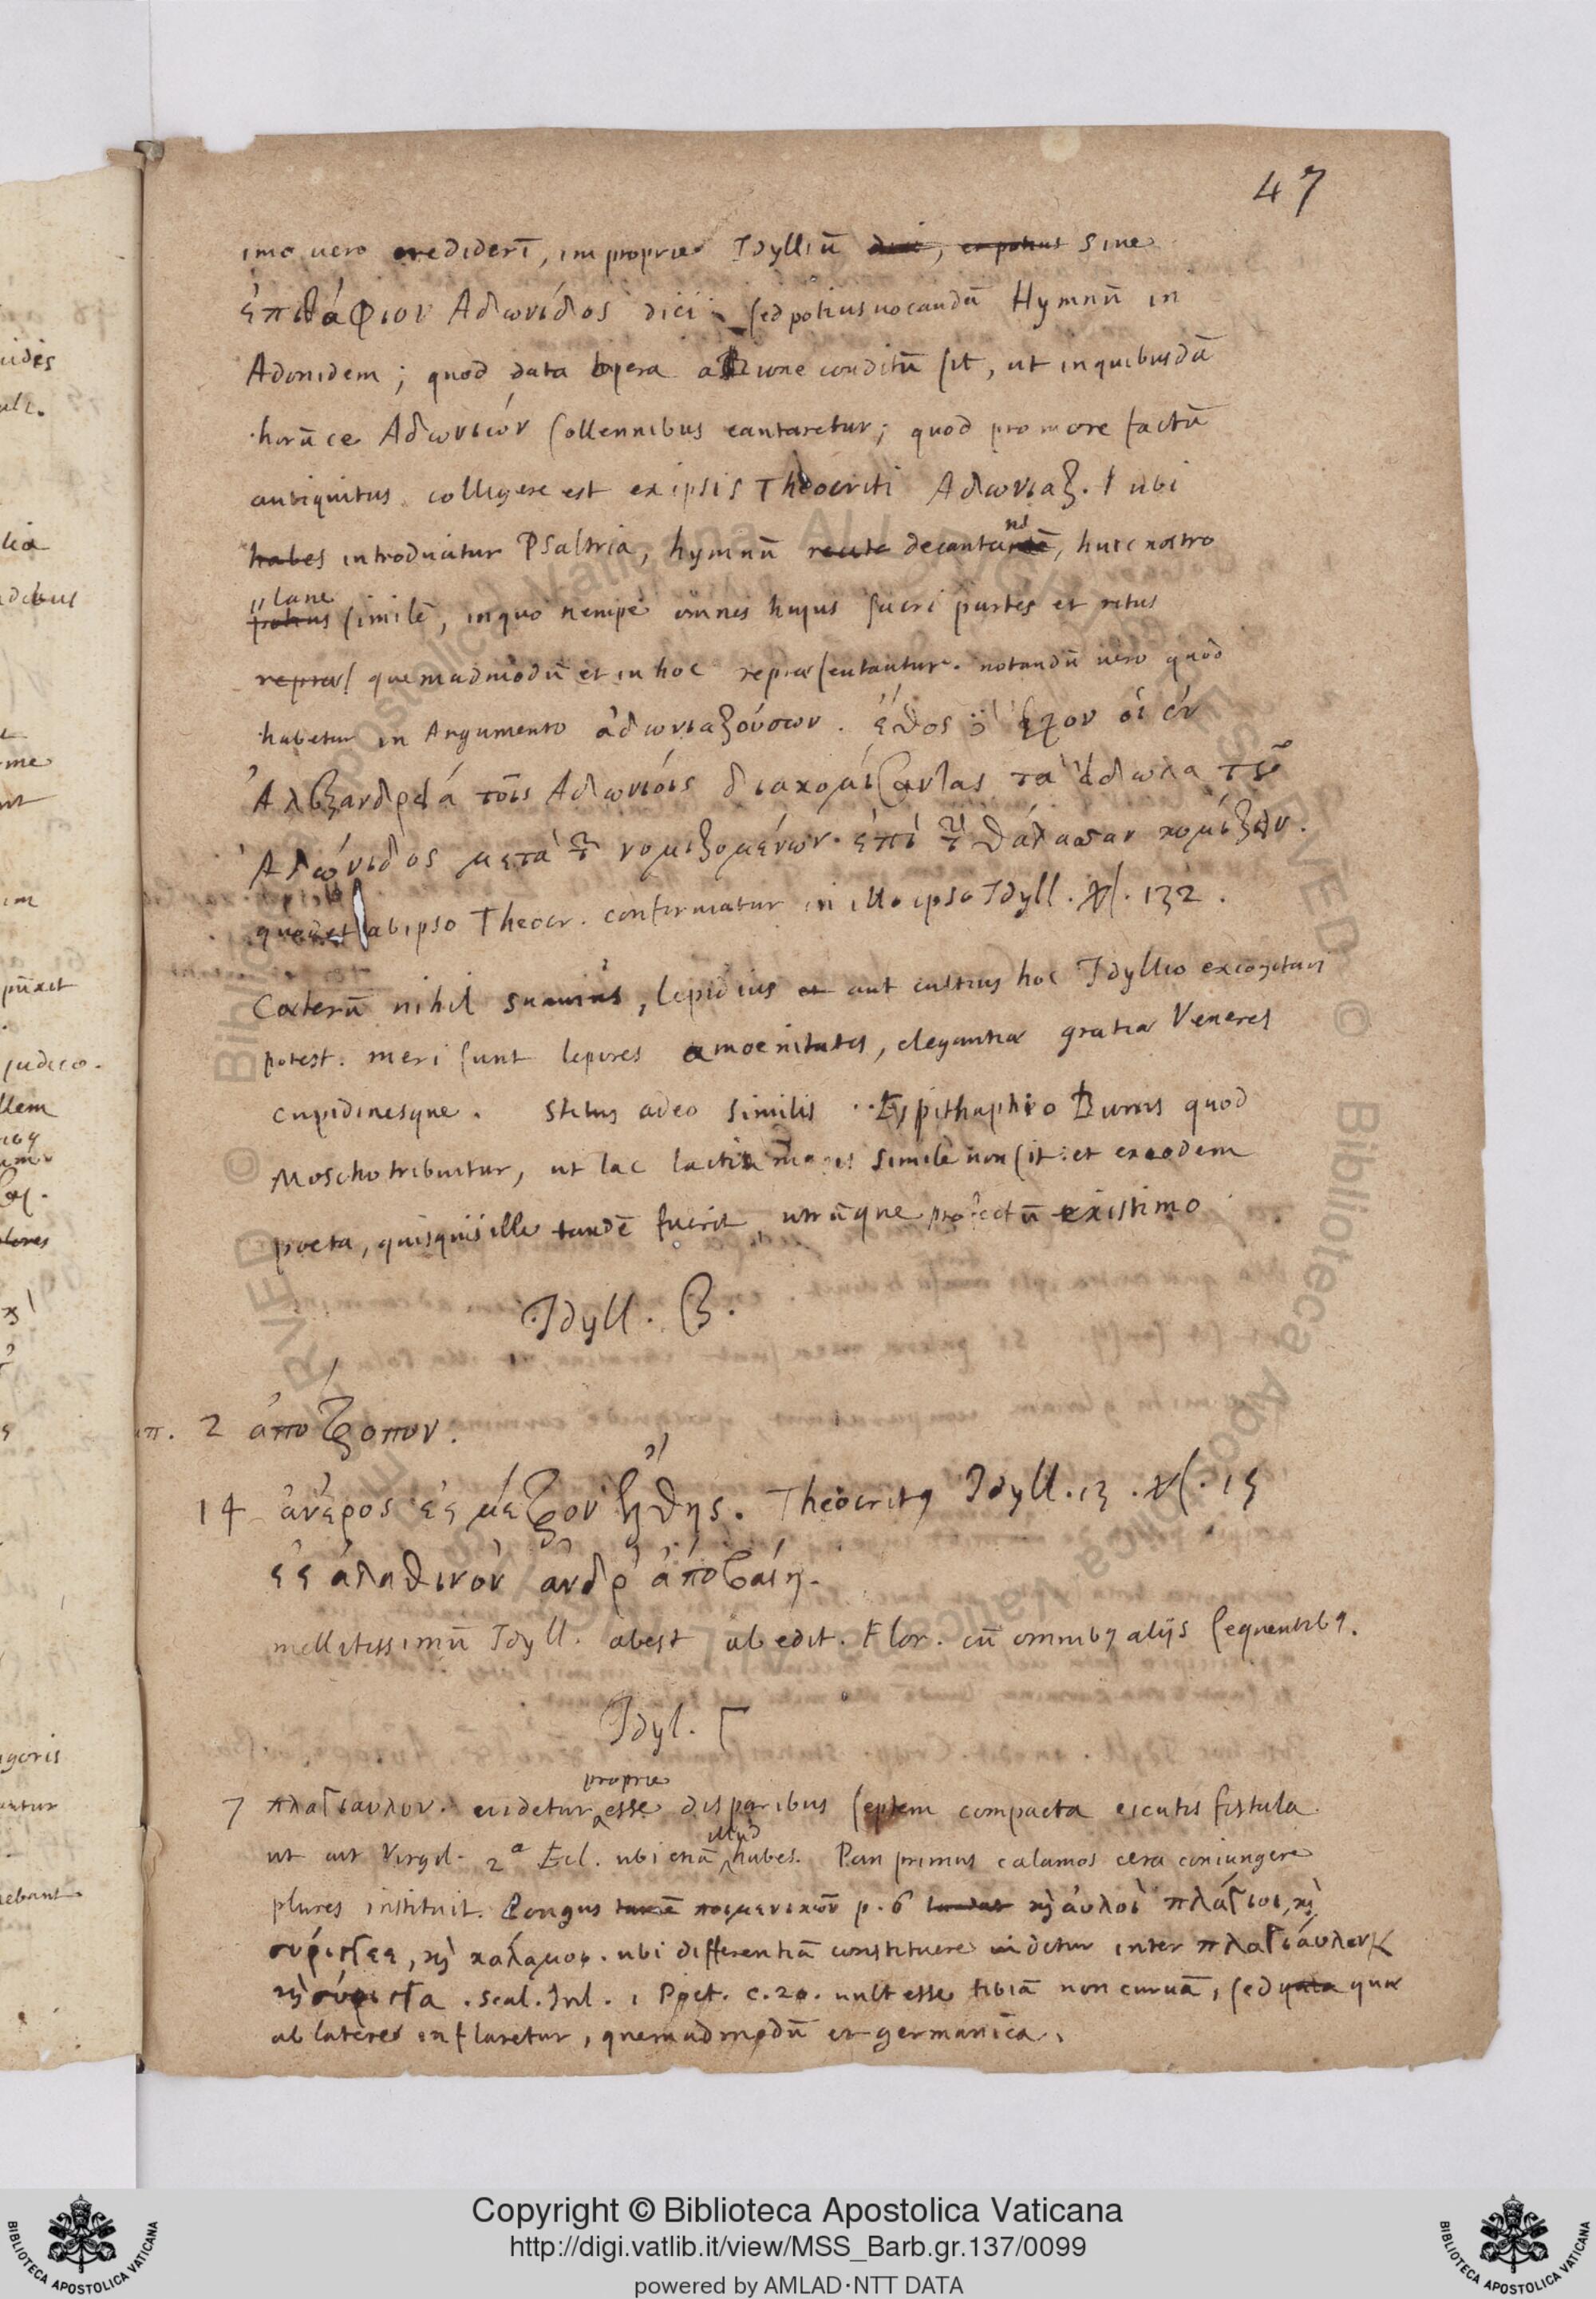 47
imo vero crediderī, improprie Idylliū dici, et potius sine
ἐπιτάφιον Ἀδωνίδος dici, sed potius vocandū Hymnū in
Adonidem; quod data opera a Bione conditū sit, ut in quibusdā
horūce Ἀδωνιών sollennibus cantaretur; quod pro more factū
antiquitus colligere est ex ipsis Theocriti Ἀδωνιαζ. ubi
habes introducitur Psaltria, hymnū decanta, huic nostro
plane
potius similē, in quo nempe omnes hujus sacri partes et ritus
repræs quemadmodū et in hoc repræsentantur. notandū vero quod
habetur in Argumento ἀδωνιαζούσων. ἔθος ἔχον οἱ ἐν
Ἀλεξανδρείᾳ τοῖς Ἀδωνίοις διακομίσαντας τὰ εἴδωλα τοῦ
Ἀδώνιδος μετὰ τ νομιζομένων ἐπὶ τ θάλασσαν κομίζειν.
quod et ab ipso Theocr. confirmatur in illo ipso Idyll. 132.
Cæterū nihil suavius, lepidius et aut cultius hoc Idyllio excogitari
potest. meri sunt lepores amoenitates, elegantiæ gratiæ Veneres
cupidinesque. stilus adeo similis Epithaphio Bionis quod
Moscho tribuitur, ut lac lacti magis simile non sit: et ex eodem
poeta, quisquis ille tandē fuerit, utrūque profectū existimo
Idyll. β.
π. 2 ἀπότροπον.
14 ἀνέρος ἐς μέτρον ἔλθης. Theocritus Idyll. 13. 15
ἐς ἀλαθινὸν ἄνδρ' ἀποβαίη.
mellitissimū Idyll. abest ab edit. Flor. cū omnibus aliis sequentibus.
Idyl. Γ
proprie
7 πλαγίαυλον. videtur esse disparibus septem compacta cicutis fistula
illud
ut ait Virgil. 2ª Ecl. ubi etiā habes. Pan primus calamos cera coniungere
plures instituit. Longus tamē ποιμενικῶν p. 6 καὶ αὐλοὶ πλάγιοι, καὶ
σύριγγες, καὶ κάλαμοι. ubi differentiā constituere videtur inter πλαγίαυλον
καὶ σύριγγα. Scal. Jul. 1 Poet. c. 20. vult esse tibiā non curvā, sed quæ
ab latere inflaretur, quemadmodū et germanica.
Copyright © Biblioteca Apostolica Vaticana
http://digi.vatlib.it/view/MSS_Barb.gr.137/0099
powered by AMLAD·NTT DATA